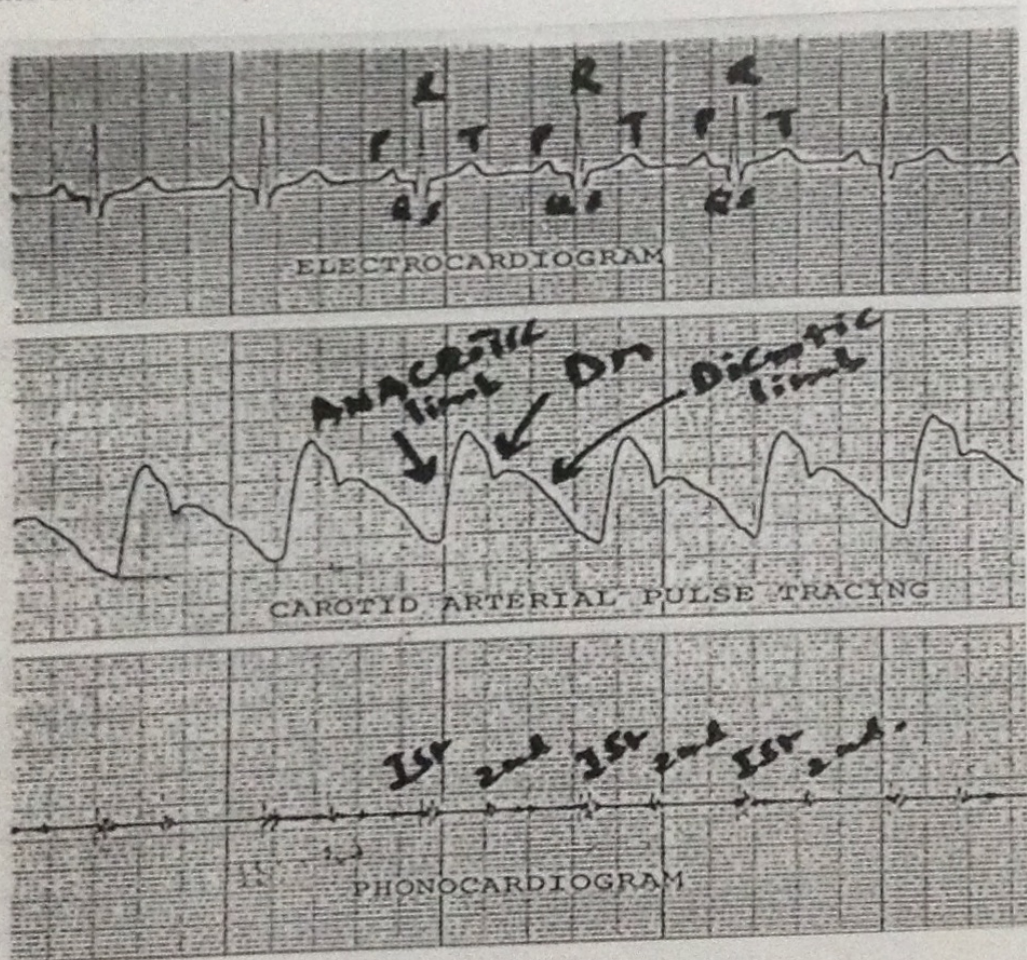 R R R
P T P T P T
Q S Q S Q S
ELECTROCARDIOGRAM
ANACROTIC
limb
Dn
Dicrotic
limb
CAROTID ARTERIAL PULSE TRACING
Ist 2nd Ist 2nd Ist 2nd.
PHONOCARDIOGRAM